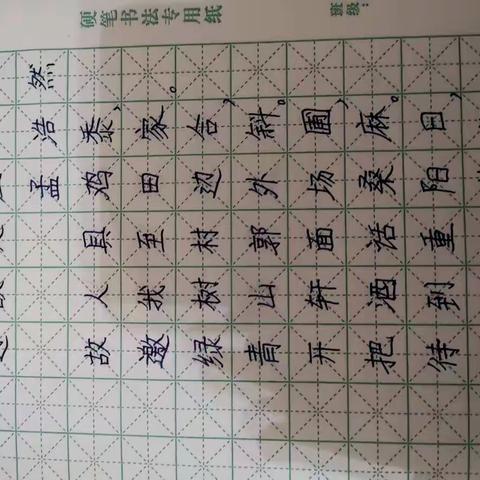 硬笔书法专用纸
班级：
孟浩然
故人具鸡黍，
邀我至田家。
绿树村边合，
青山郭外斜。
开轩面场圃，
把酒话桑麻。
待到重阳日，